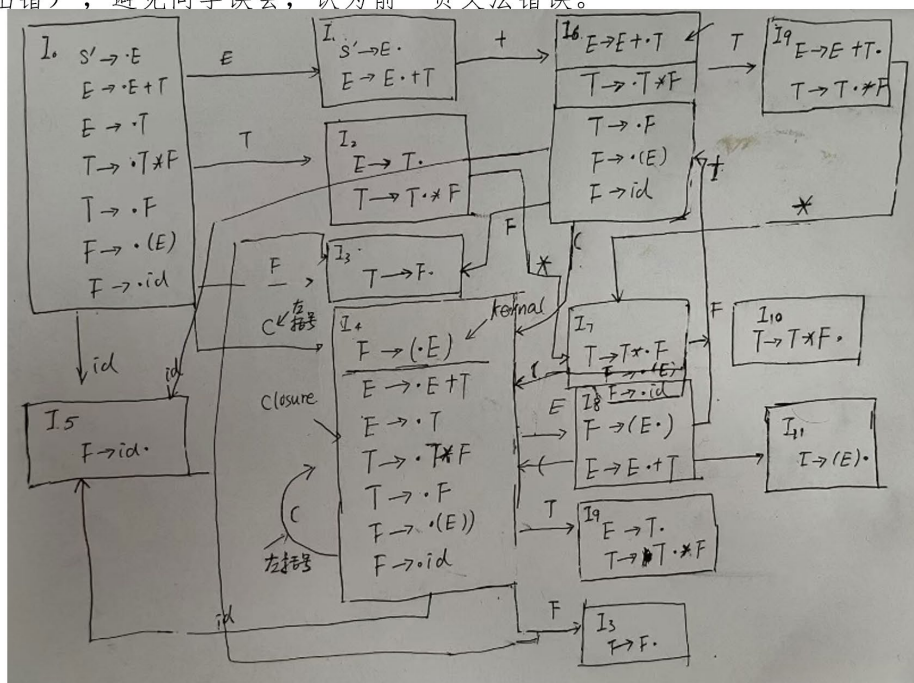 出错），避免同学误会，认为前一页文法错误。
I₀
S'→·E
E→·E+T
E→·T
T→·T*F
T→·F
F→·(E)
F→·id
E
I₁
S'→E·
E→E·+T
+
I6
E→E+·T
T→·T*F
T→·F
F→·(E)
F→id
T
I9
E→E+T·
T→T·*F
T
I₂
E→T·
T→T·*F
F
I₃
T→F·
F
C
*
+
*
C 左括号
I₄
kernal
F→(·E)
E→·E+T
E→·T
T→·T*F
T→·F
F→·(E))
F→·id
closure
C
左括号
I₇
T→T*·F
F→·(E)
F→·id
F
I₁₀
T→T*F·
id
id
I5
F→id·
E
I8
F→(E·)
E→E·+T
(
I₁₁
I→(E)·
T
I9
E→T·
T→T·*F
id
F
I₃
F→F·